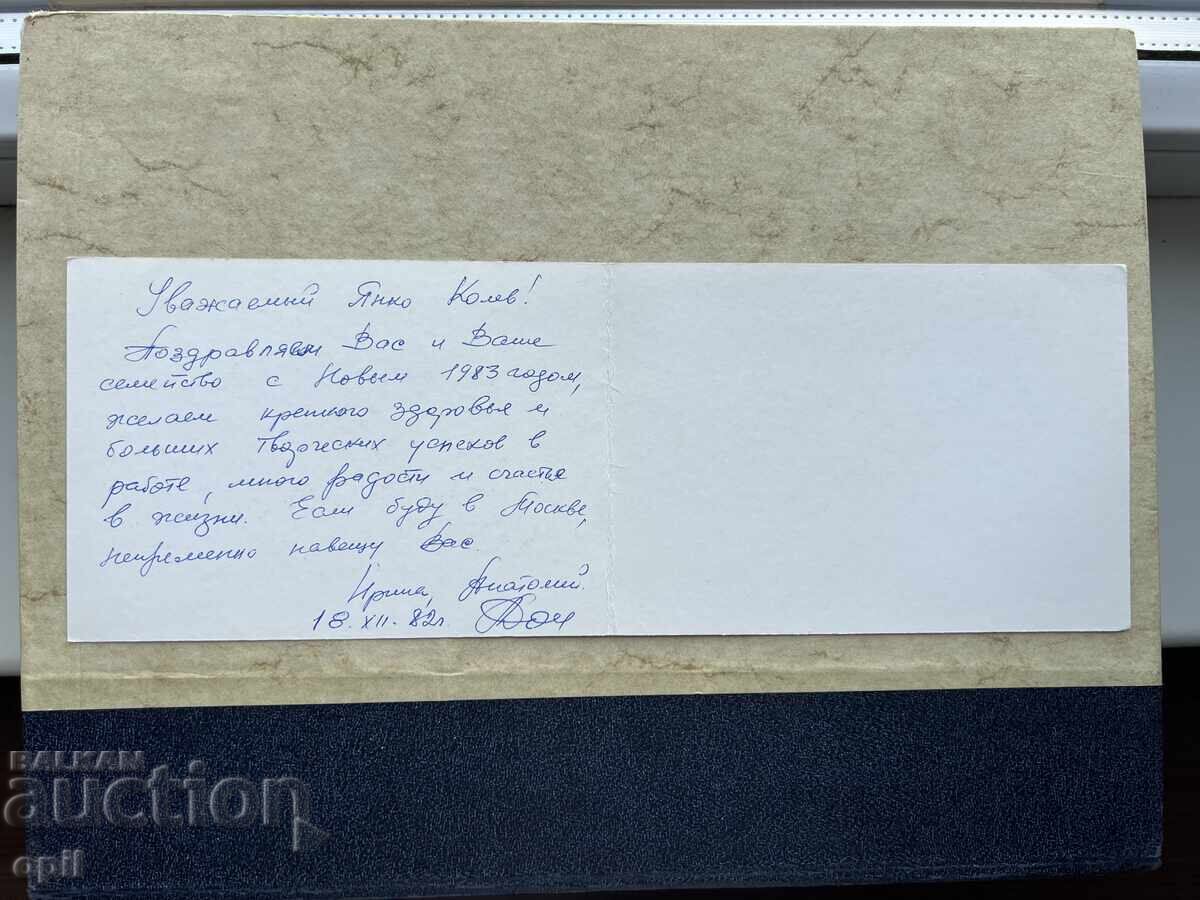 Уважаемый Янко Колев!
Поздравляем Вас и Ваше
семейство с Новым 1983 годом,
желаем крепкого здоровья и
больших творческих успехов в
работе, много радости и счастья
в жизни. Если буду в Москве,
непременно навещу Вас.
Ирина, Анатолий.
18.XII.82г.
BALKAN
auction
opil